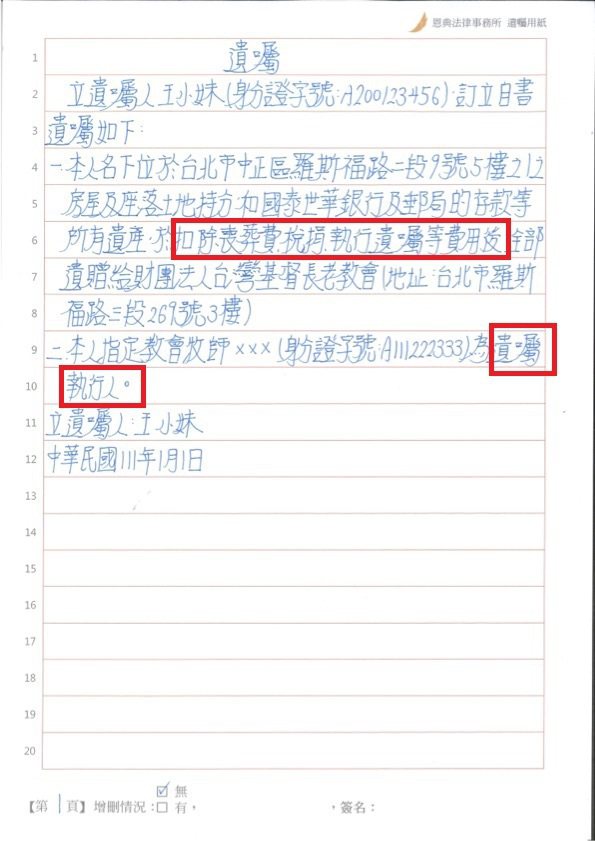 恩典法律事務所 遺囑用紙
1 遺囑
2 立遺囑人王小妹(身分證字號:A200123456).訂立自書
3 遺囑如下:
4 一.本人名下位於台北市中正區羅斯福路二段9號5樓之12
5 房屋及座落土地持分.和國泰世華銀行及郵局的存款等
6 所有遺產.於扣除喪葬費.稅捐.執行遺囑等費用後.全部
7 遺贈給財團法人台灣基督長老教會(地址:台北市羅斯
8 福路三段269號3樓)
9 二.本人指定教會牧師×××(身分證字號:A111222333).為遺囑
10 執行人。
11 立遺囑人:王小妹
12 中華民國111年1月1日
13
14
15
16
17
18
19
20
【第1頁】增刪情況:☑無
□有, ,簽名: